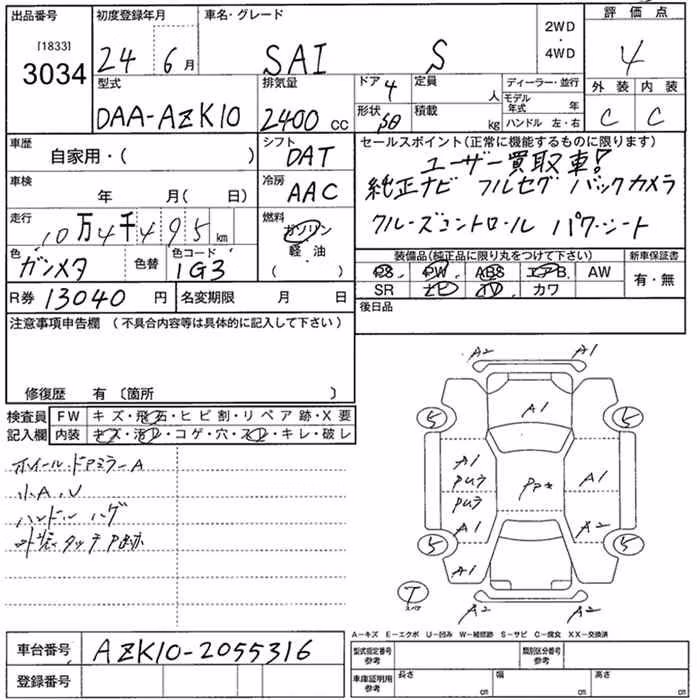 出品番号 初度登録年月 車名・グレード 2WD・4WD 評価点
[1833]
3034 24 6月 SAI S 4
型式 排気量 ドア 4 定員 人 ディーラー・並行 外装 内装
DAA-AZK10 2400 cc 形状 積載 kg モデル年式 年 C C
ハンドル 左・右
車歴 シフト セールスポイント(正常に機能するものに限ります)
自家用・( ) DAT ユーザー買取車!
車検 冷房 純正ナビ フルセグ バックカメラ
年 月( 日) AAC クルーズコントロール パワーシート
走行 燃料
10万4千495km ガソリン
軽・油
( )
色 色替 色コード 装備品(純正品に限り丸をつけて下さい) 新車保証書
ガンメタ 1G3 PS PW ABS エアB AW 有・無
R券 13040 円 名変期限 月 日 SR ナビ TV カワ
注意事項申告欄 (不具合内容等は具体的に記入して下さい) 後日品
修復歴 有 〔箇所 〕
検査員記入欄 FW キズ・飛石・ヒビ割・リペア跡・X要
内装 キズ・汚レ・コゲ・穴・スレ・キレ・破レ
ホイール・ドアミラーA
小A、U
ハンドル ハゲ
A2 A1
A1
5 5
A1 A1
A1 A2
5 5
A1
T
A2 A2
A-キズ E-エクボ U-凹み W-補修跡 S-サビ C-腐食 XX-交換済
車台番号 AZK10-2055316 型式指定番号 参考 類別区分番号 参考
登録番号 車庫証明用 参考 長さ cm 幅 cm 高さ cm